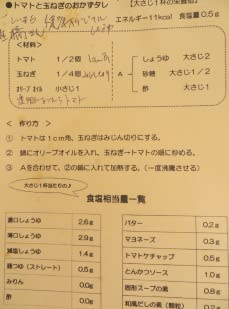 ●トマトと玉ねぎのおかずダレ 【大さじ1杯の栄養価】
エネルギー11kcal 食塩量0.5g
しょうゆ
<材料>
トマト 1/2個
玉ねぎ 1/4個 みじん切り
オリーブオイル 小さじ1
A
しょうゆ 大さじ2
砂糖 大さじ1/2
酢 大さじ1
< 作り方 >
① トマトは1cm角、玉ねぎはみじん切りにする。
② 鍋にオリーブオイルを入れ、玉ねぎ→トマトの順に炒める。
③ Aを合わせて、②の鍋に入れて加熱する。(一度沸騰させる)
大さじ1杯当たりの♪
食塩相当量一覧
濃口しょうゆ 2.6g
薄口しょうゆ 2.9g
減塩しょうゆ 1.4g
麺つゆ(ストレート) 0.5g
みりん 0.0g
酢 0.0g
バター 0.2g
マヨネーズ 0.3g
トマトケチャップ 0.5g
とんかつソース 1.0g
固形スープの素 0.8g
和風だしの素(顆粒) 0.2g